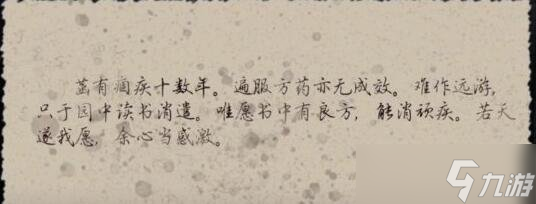 茁有痼疾十数年。遍服方药亦无成效。难作远游,
只于园中读书消遣。唯愿书中有良方,能消顽疾。若天
遂我愿,余心当感激。
九游